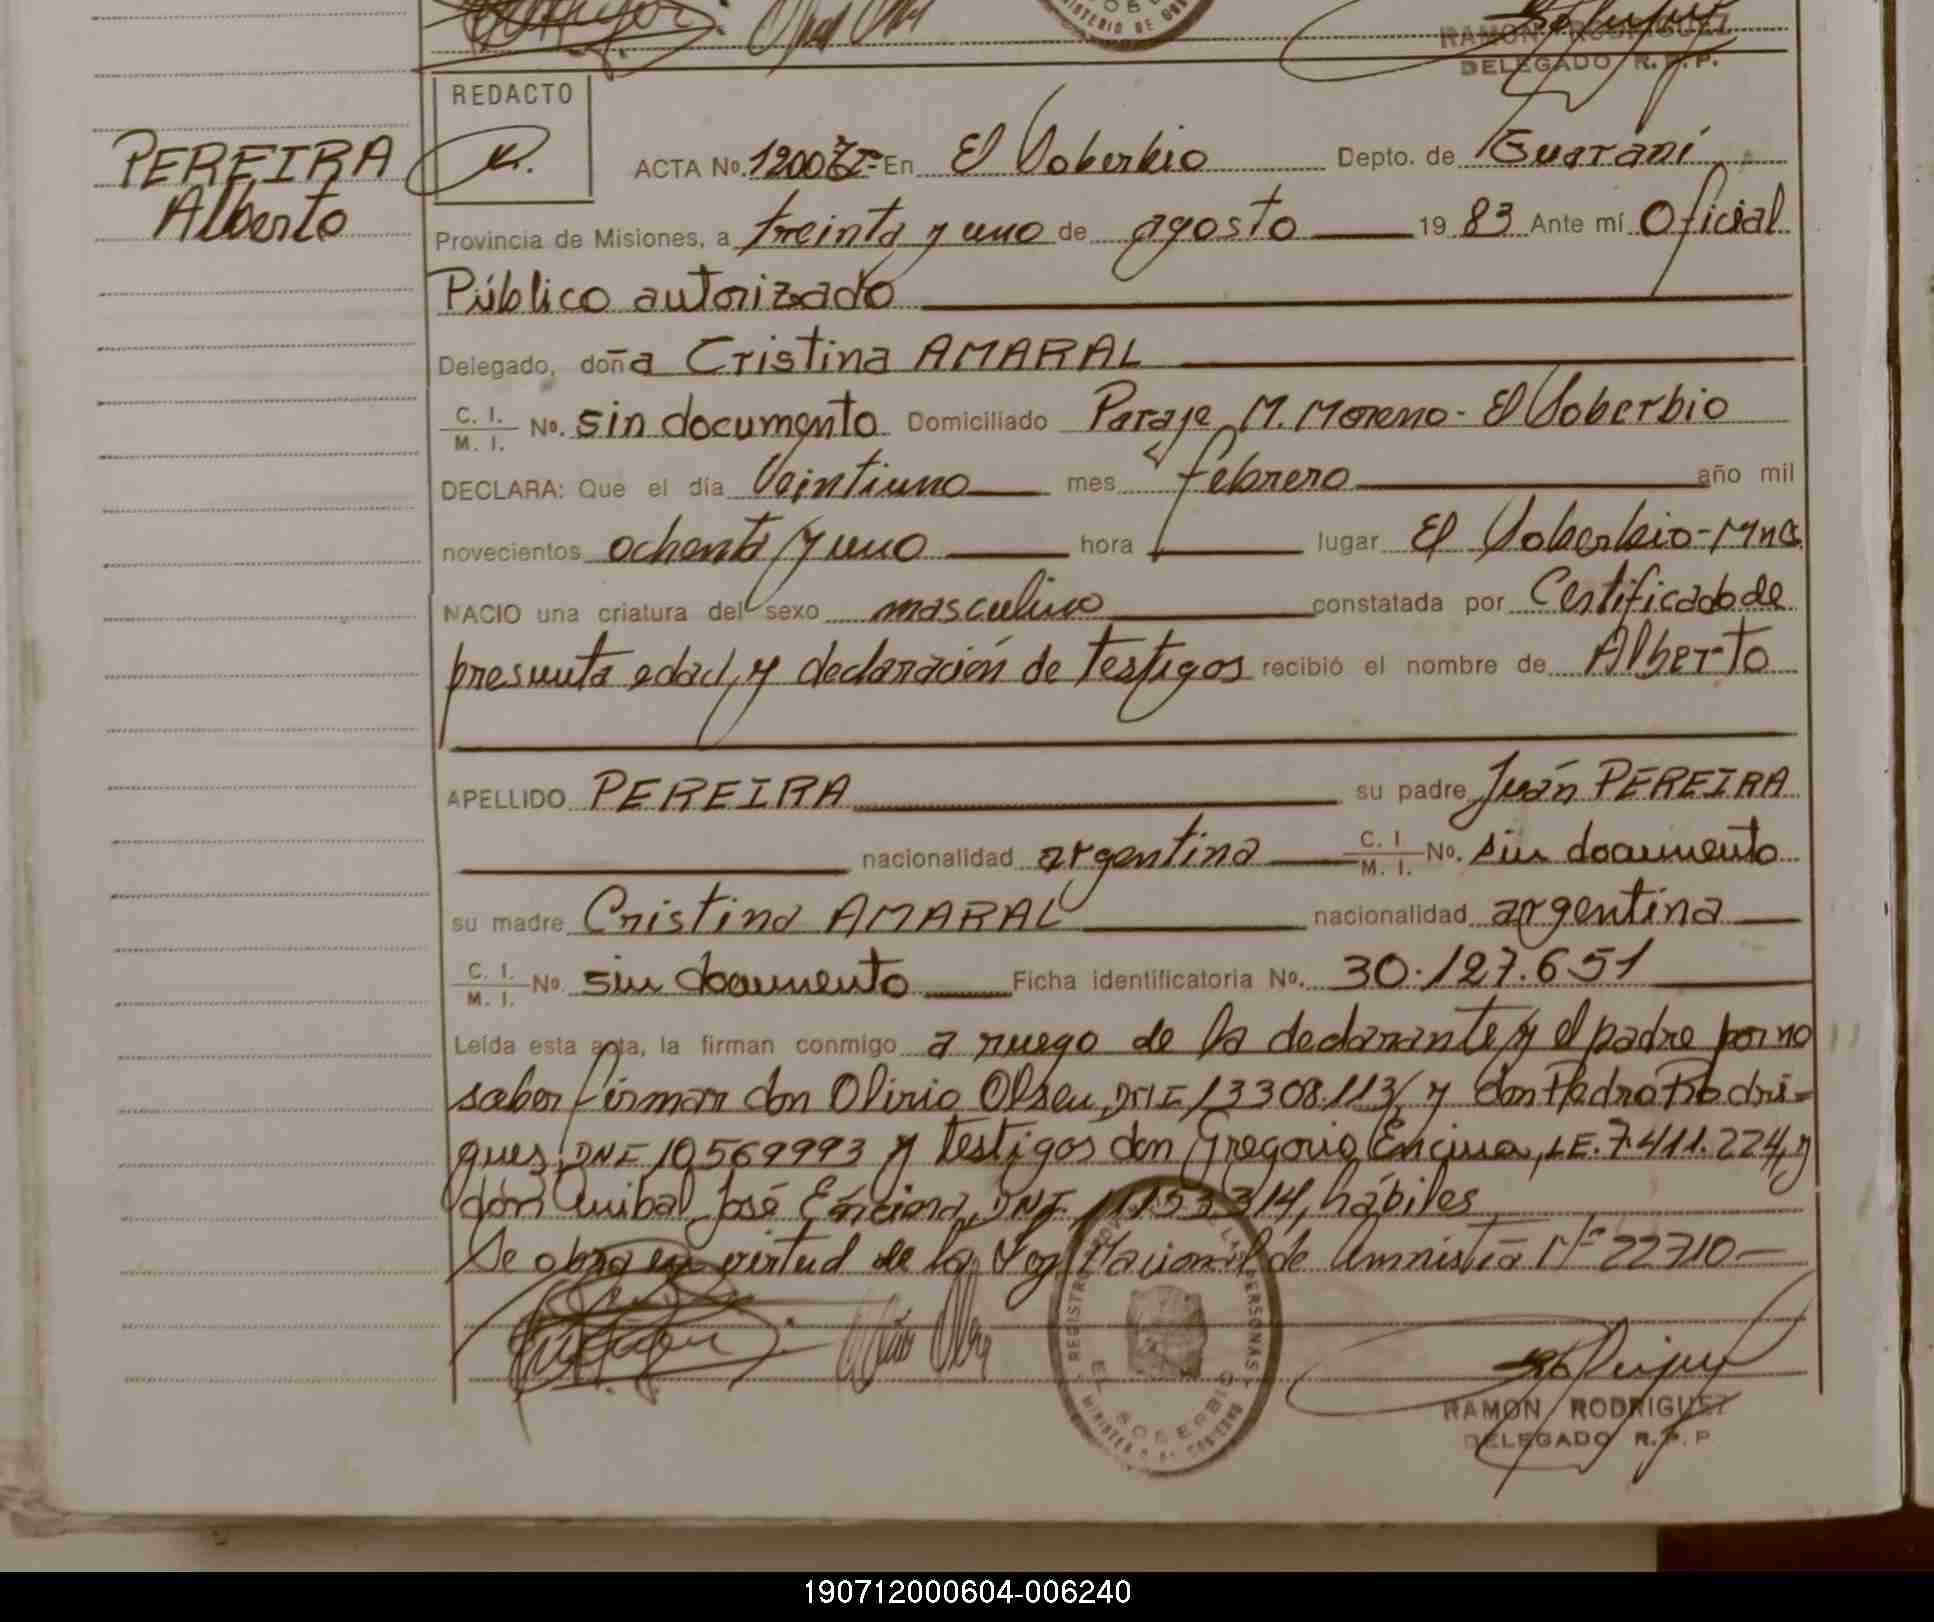 RAMON RODRIGUEZ
DELEGADO R. P. P.
REDACTO
PEREIRA
Alberto
ACTA No. 1200 En El Soberbio Depto. de Guaraní
Provincia de Misiones, a treinta y uno de agosto 1983 Ante mí Oficial
Público autorizado
Delegado, doña Cristina AMARAL
C. I. / M. I. No. sin documento Domiciliado Paraje M. Moreno - El Soberbio
DECLARA: Que el día Veintiuno mes febrero año mil
novecientos ochenta y uno hora lugar El Soberbio - Mnes
NACIO una criatura del sexo masculino constatada por Certificado de
presunta edad, y declaración de testigos recibió el nombre de Alberto
APELLIDO PEREIRA su padre Juán PEREIRA
nacionalidad argentina C. I. / M. I. No. sin documento
su madre Cristina AMARAL nacionalidad argentina
C. I. / M. I. No. sin documento Ficha identificatoria No. 30.127.651
Leída esta acta, la firman conmigo a ruego de la declarante y el padre por no
saber firmar don Olirio Olsen, DNI 13308.113, y don Pedro Rodri=
gues, DNI 10.569993 y testigos don Gregorio Encina, LE. 7.411.224, y
don Anibal José Enciona, DNI. 11153314, hábiles
Se obra en virtud de la Ley Nacional de Amnistía Nº 22710-
REGISTRO PROV. DE LAS PERSONAS
EL SOBERBIO
MINISTERIO DE GOBIERNO
RAMON RODRIGUEZ
DELEGADO R. P. P
190712000604-006240